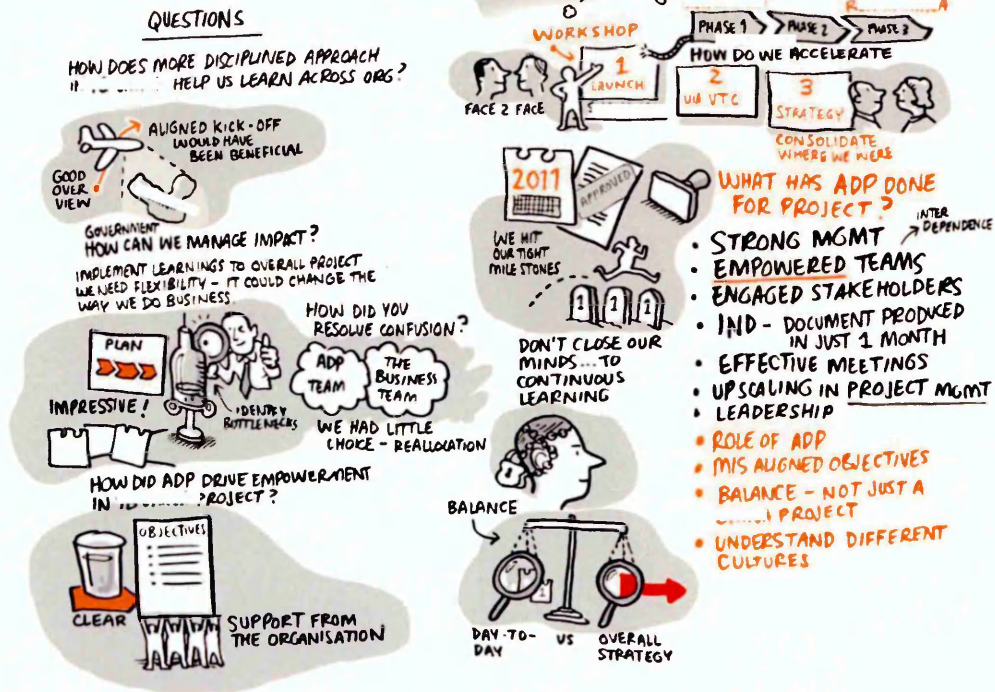 QUESTIONS
HOW DOES MORE DISCIPLINED APPROACH
HELP US LEARN ACROSS ORG?
ALIGNED KICK-OFF
WOULD HAVE
BEEN BENEFICIAL
GOOD
OVER
VIEW
GOVERNMENT
HOW CAN WE MANAGE IMPACT?
IMPLEMENT LEARNINGS TO OVERALL PROJECT
WE NEED FLEXIBILITY - IT COULD CHANGE THE
WAY WE DO BUSINESS.
PLAN
IMPRESSIVE!
IDENTIFY
BOTTLENECKS
HOW DID YOU
RESOLVE CONFUSION?
ADP
TEAM
THE
BUSINESS
TEAM
WE HAD LITTLE
CHOICE - REALLOCATION
HOW DID ADP DRIVE EMPOWERMENT
IN PROJECT?
OBJECTIVES
CLEAR
SUPPORT FROM
THE ORGANISATION
WORKSHOP
PHASE 1
PHASE 2
PHASE 3
HOW DO WE ACCELERATE
FACE 2 FACE
1
LAUNCH
2
VIA VTC
3
STRATEGY
CONSOLIDATE
WHERE WE WERE
2011
APPROVED
WE HIT
OUR TIGHT
MILE STONES
1 1 1
DON'T CLOSE OUR
MINDS... TO
CONTINUOUS
LEARNING
BALANCE
1
DAY-TO-
DAY
VS
OVERALL
STRATEGY
WHAT HAS ADP DONE
FOR PROJECT?
• STRONG MGMT
INTER
DEPENDENCE
• EMPOWERED TEAMS
• ENGAGED STAKEHOLDERS
• IND - DOCUMENT PRODUCED
IN JUST 1 MONTH
• EFFECTIVE MEETINGS
• UPSCALING IN PROJECT MGMT
• LEADERSHIP
• ROLE OF ADP
• MIS ALIGNED OBJECTIVES
• BALANCE - NOT JUST A
PROJECT
• UNDERSTAND DIFFERENT
CULTURES